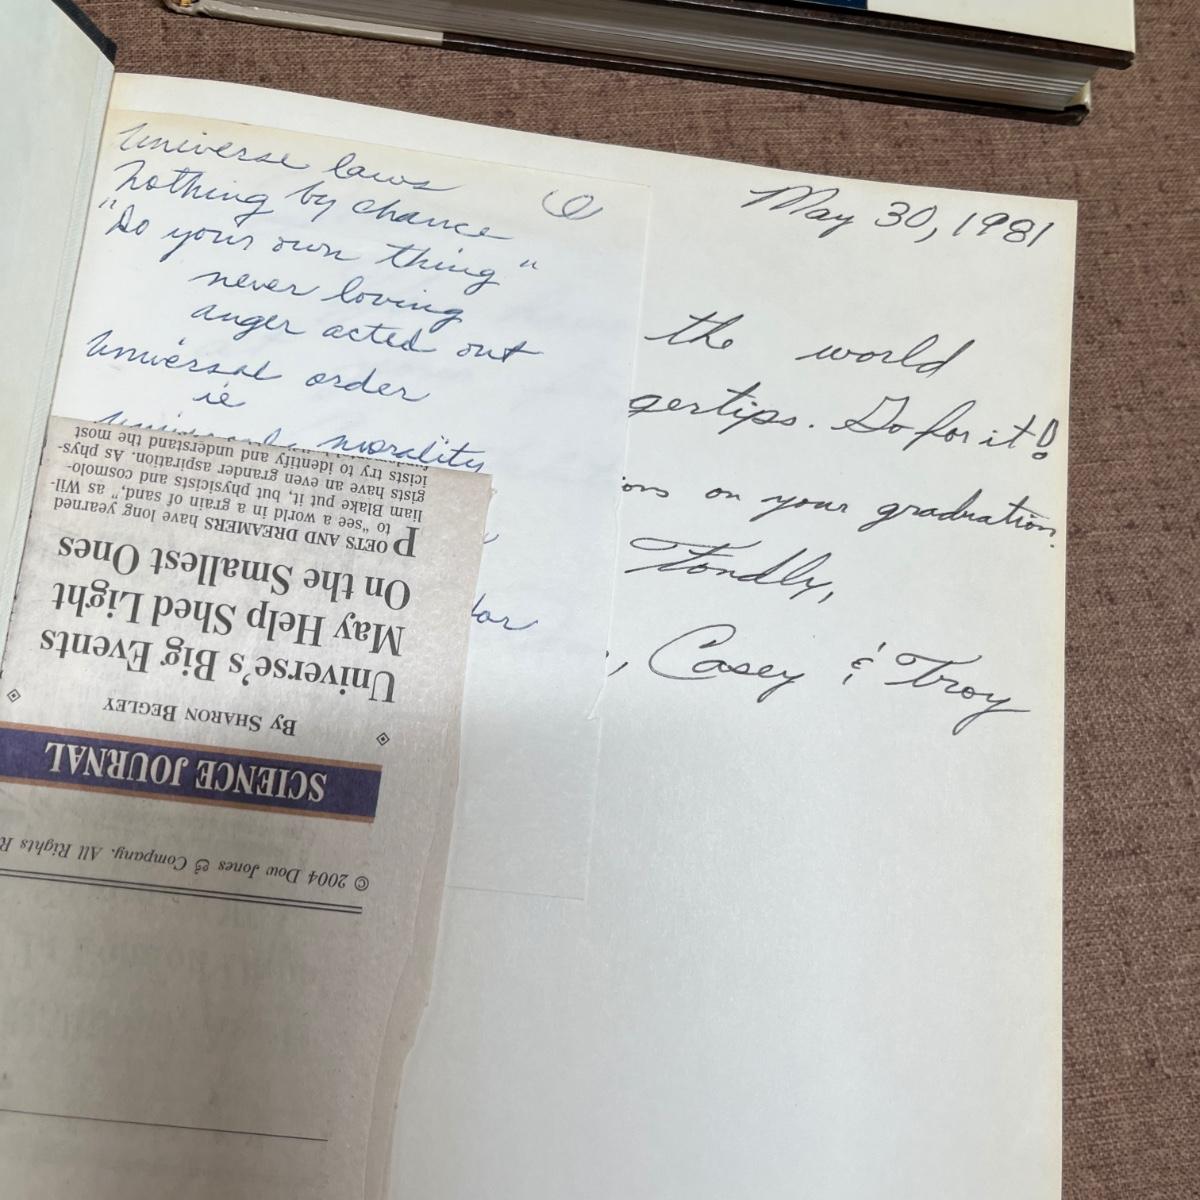 Universe laws
nothing by chance
"Do your own thing"
never loving
anger acted out
Universal order
ie
morality
May 30, 1981
the world
gertips. Go for it!
ons on your graduation.
Fondly,
, Casey & Troy
© 2004 Dow Jones & Company. All Rights R
SCIENCE JOURNAL
By SHARON BEGLEY
Universe's Big Events
May Help Shed Light
On the Smallest Ones
POETS AND DREAMERS have long yearned
to "see a world in a grain of sand," as Wil-
liam Blake put it, but physicists and cosmolo-
gists have an even grander aspiration. As phys-
icists try to identify and understand the most